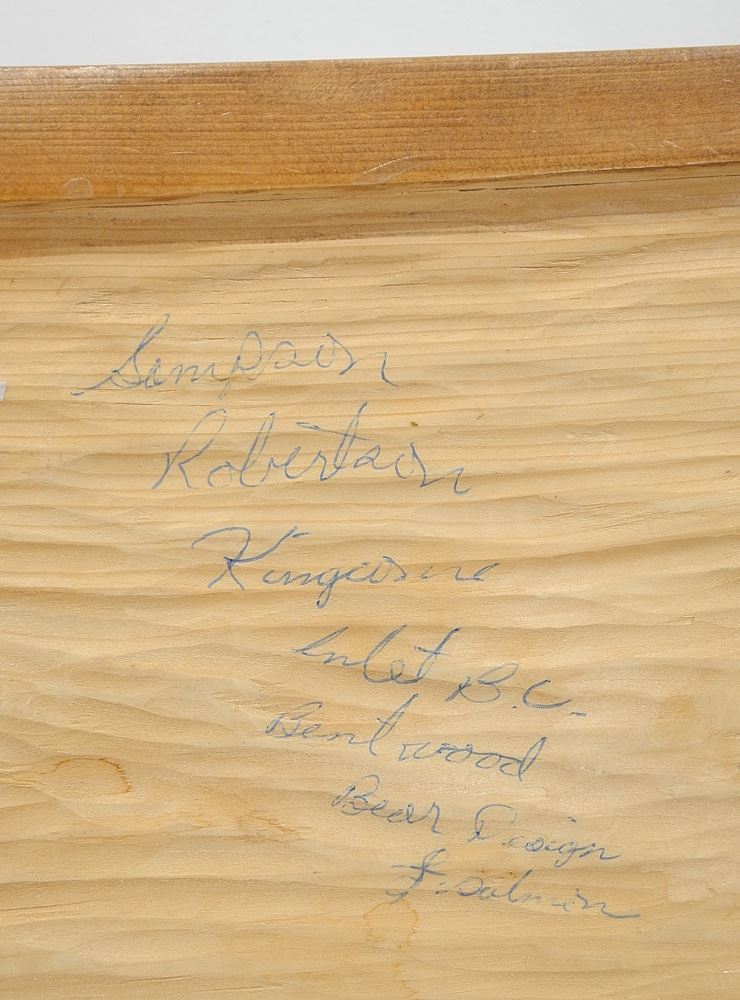 Simpson
Robertson
Kingcome
Inlet B.C.
Bentwood
Bear Design
& Salmon